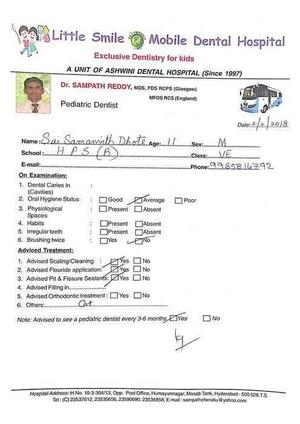 Little Smile Mobile Dental Hospital
Exclusive Dentistry for kids
A UNIT OF ASHWINI DENTAL HOSPITAL (Since 1997)
Dr. SAMPATH REDDY, MDS, FDS RCPS (Glasgow)
MFDS RCS (England)
Pediatric Dentist
Date: 2/2/2018
Name: Sai Samanvith Dhote Age: 11 Sex: M
School: H P S (B) Class: VE
E-mail: Phone: 9985816792
On Examination:
1. Dental Caries in :
(Cavities)
2. Oral Hygiene Status : Good Average Poor
3. Physiological : Present Absent
Spaces
4. Habits : Present Absent
5. Irregular teeth : Present Absent
6. Brushing twice : Yes No
Adviced Treatment:
1. Advised Scaling/Cleaning : Yes No
2. Advised Flouride application: Yes No
3. Advised Pit & Fissure Sealants: Yes No
4. Advised Filling in
5. Advised Orthodontic treatment : Yes No
6. Others:
Note: Advised to see a pediatric dentist every 3-6 months. Yes No
Hospital Address: H.No. 10-3-304/13, Opp. Post Office, Humayunnagar, Masab Tank, Hyderabad - 500 028.T.S.
Tel: (C) 23537612, 23535656, 23590690, 23535858, E-mail : sampathcheruku@yahoo.com